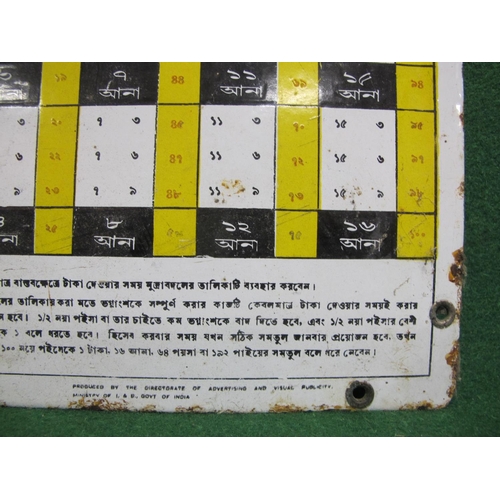 ৩ ১৯ ৭ ৪৪ ১১ ৬৯ ১৫ ৯৪
আনা আনা আনা
৩ ২০ ৭ ৩ ৪৫ ১১ ৩ ৭০ ১৫ ৩ ৯৫
৬ ২২ ৭ ৬ ৪৭ ১১ ৬ ৭২ ১৫ ৬ ৯৭
৯ ২৩ ৭ ৯ ৪৮ ১১ ৯ ৭৩ ১৫ ৯ ৯৮
৪ ২৫ ৮ ৫০ ১২ ৭৫ ১৬ ১০০
আনা আনা আনা
বাস্তবক্ষেত্রে টাকা দেওয়ার সময় মুদ্রাবদলের তালিকাটি ব্যবহার করবেন।
তালিকায় করা মতে ভগ্নাংশকে সম্পূর্ণ করার কাজটি কেবলমাত্র টাকা দেওয়ার সময়ই করার
হবে। ১/২ নয়া পইসা বা তার চাইতে কম ভগ্নাংশকে বাদ দিতে হবে, এবং ১/২ নয়া পইসার বেশী
১ বলে ধরতে হবে। হিসেব করবার সময় যখন সঠিক সমতুল জানবার প্রয়োজন হবে, তখন
১০০ নয়ে পইসেকে ১ টাকা, ১৬ আনা, ৬৪ পয়সা বা ১৯২ পাইয়ের সমতুল বলে ধরে নেবেন।
PRODUCED BY THE DIRECTORATE OF ADVERTISING AND VISUAL PUBLICITY,
MINISTRY OF I. & B., GOVT OF INDIA